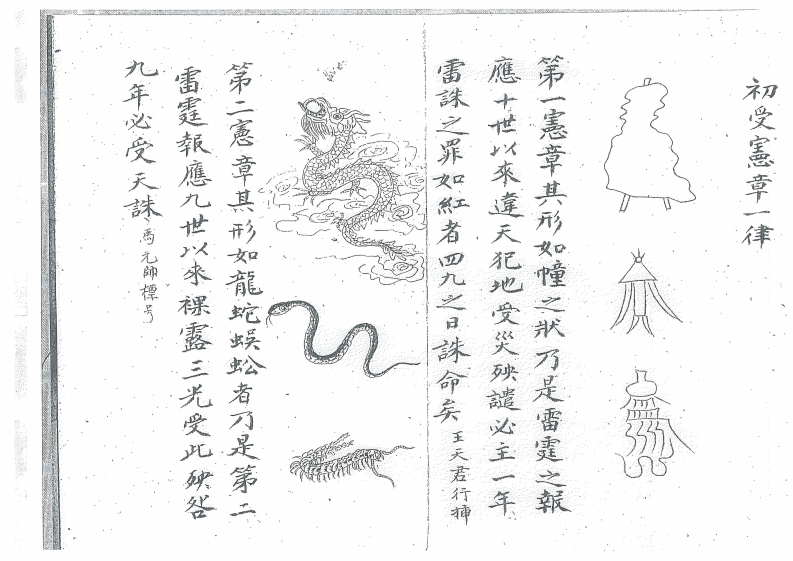 初受憲章一律
第一憲章其形如幢之狀乃是雷霆之報
應十世以來違天犯地受災殃譴必主一年
雷誅之罪如紅者四九之日誅命矣 王天君行捕
第二憲章其形如龍蛇蜈蚣者乃是第二
雷霆報應九世以來裸露三光受此殃咎
九年必受天誅 馬元帥標号